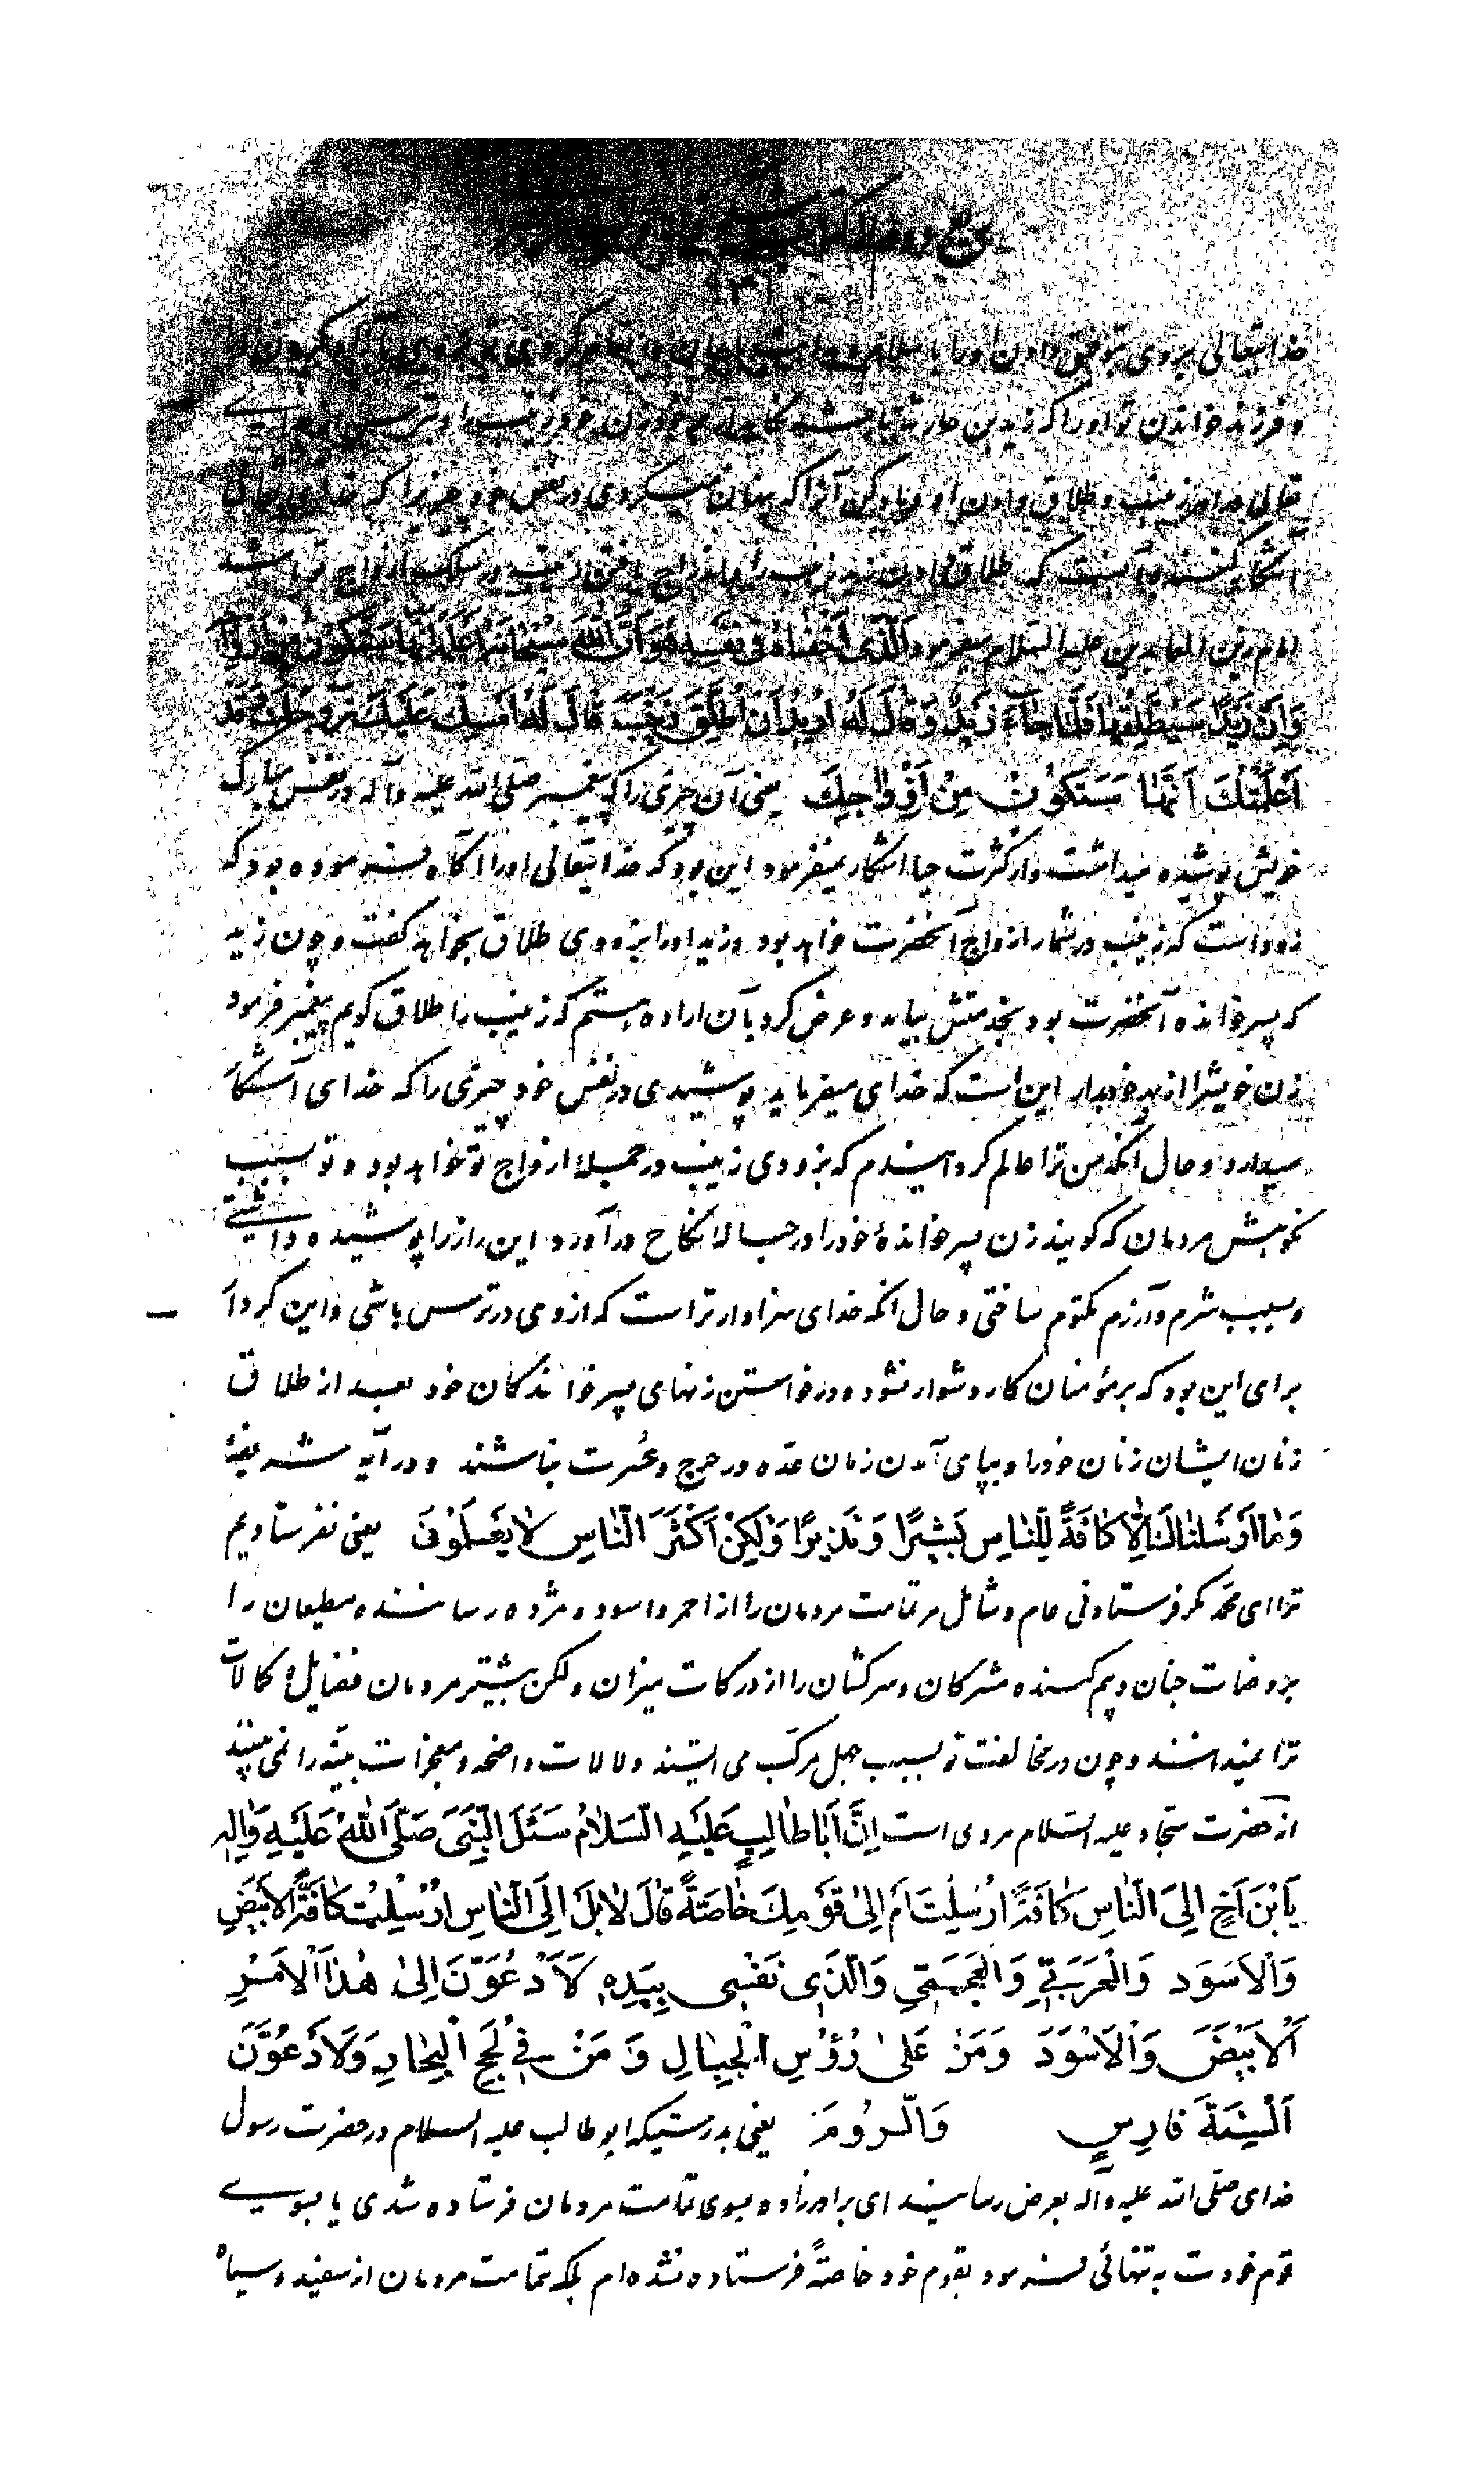 ربع دوم از کتاب
۱۳۱
خدایتعالی بروی بتوفیق دادن او را باسلام و انعام کردی تو بروی بآزاد کردن او
و فرزند خواندن تو او را که زید بن حارثه باشد نگاه دار بر خود زن خود زینب را و بترس از خدای
تعالی در امر زینب و طلاق دادن او و یاد کن آنرا که پنهان میکردی در نفس خود چیزیرا که خدای تعالی
آشکار کننده آنست که طلاق دادن زید زینب را و اندراج یافتن زینب در سلک ازواج تو باشد
امام زین العابدین علیه السلام میفرمود اَلَّذی اَخْفٰاهُ فی نَفْسِهِ هُوَ اَنَّ اللّٰهَ سُبْحٰانَهُ اَعْلَمَهُ اَنَّهٰا سَتَکُونُ مِنْ اَزْوٰاجِهِ
وَ اِنَّ زَیْدًا سَیُطَلِّقُهٰا فَلَمّٰا جٰآءَ زَیْدٌ وَ قٰالَ لَهُ اُریدُ اَنْ اُطَلِّقَ زَیْنَبَ قٰالَ لَهُ اَمْسِکْ عَلَیْکَ زَوْجَکَ وَ قَدْ
اَعْلَمْتُکَ اَنَّهٰا سَتَکُونُ مِنْ اَزْوٰاجِکَ یعنی آن چیزی را که پیغمبر صلّی الله علیه و آله در نفس مبارک
خویش پوشیده میداشت و از کثرت حیا آشکار نمیفرمود این بود که خدایتعالی او را آگاه فرموده بود که
زود است که زینب در شمار ازواج آنحضرت خواهد بود و زید او را بزودی طلاق بخواهد گفت و چون زید
که پسر خوانده آنحضرت بود بخدمتش بیامد و عرض کرد بآن اراده هستم که زینب را طلاق گویم پیغمبر فرمود
زن خویشرا از بهر خود بدار این است که خدای میفرماید پوشیدی در نفس خود چیزی را که خدای آشکار
میدارد و حال آنکه من ترا عالم گردانیدم که بزودی زینب در جمله ازواج تو خواهد بود و تو بسبب
نکوهش مردمان که گویند زن پسر خوانده خود را در حباله نکاح در آورد این راز را پوشیده داشتی
و بسبب شرم و آزرم مکتوم ساختی و حال آنکه خدای سزاوارتر است که از وی در ترس باشی و این کردار
برای این بود که بر مؤمنان کار دشوار نشود و در خواستن زنهای پسر خواندگان خود بعد از طلاق
زنان ایشان زنان خود را و بپای آمدن زمان عدّه در حرج و عُسرت نباشند و در آیه شریفهٔ
وَ مٰا اَرْسَلْنٰاکَ اِلّٰا کٰافَّةً لِلنّٰاسِ بَشیرًا وَ نَذیرًا وَلٰکِنَّ اَکْثَرَ النّٰاسِ لٰا یَعْلَمُونَ یعنی نفرستادیم
ترا ای محمّد مگر فرستادنی عام و شامل مر تمامت مردمان را از احمر و اسود و مژده رساننده مطیعان را
بروضات جنان و بیم کننده مشرکان و سرکشان را از درکات میزان ولکن بیشتر مردمان فضایل و کمالات
ترا نمیدانند و چون در مخالفت تو بسبب جهل مرکّب می ایستند دلالات واضحه و معجزات بیّنه را نمی بینند
از حضرت سجّاد علیه السّلام مروی است اِنَّ اَبٰا طٰالِبٍ عَلَیْهِ السَّلٰامُ سَئَلَ النَّبِیَّ صَلَّی اللّٰهُ عَلَیْهِ وَ اٰلِهِ
یَا بْنَ اَخِ اِلَی النّٰاسِ کٰافَّةً اُرْسِلْتَ اَمْ اِلیٰ قَوْمِکَ خٰاصَّةً قٰالَ لٰا بَلْ اِلَی النّٰاسِ اُرْسِلْتُ کٰافَّةً الْاَبْیَضِ
وَ الْاَسْوَدِ وَ الْعَرَبِیِّ وَ الْعَجَمِیِّ وَ الَّذی نَفْسی بِیَدِهِ لَاَدْعُوَنَّ اِلیٰ هٰذَا الْاَمْرِ
اَلْاَبْیَضَ وَ الْاَسْوَدَ وَ مَنْ عَلیٰ رُؤُسِ الْجِبٰالِ وَ مَنْ فی لُجَجِ الْبِحٰارِ وَ لَاَدْعُوَنَّ
اَلْسِنَةَ فٰارِسٍ وَ الرُّومَ یعنی بدرستیکه ابو طالب علیه السلام در حضرت رسول
خدای صلّی الله علیه و آله بعرض رسانید ای برادر زاده بسوی تمامت مردمان فرستاده شدی یا بسوی
قوم خودت به تنهائی فرمود بقوم خود خاصّةً فرستاده نشده ام بلکه بتمامت مردمان از سفید و سیاه